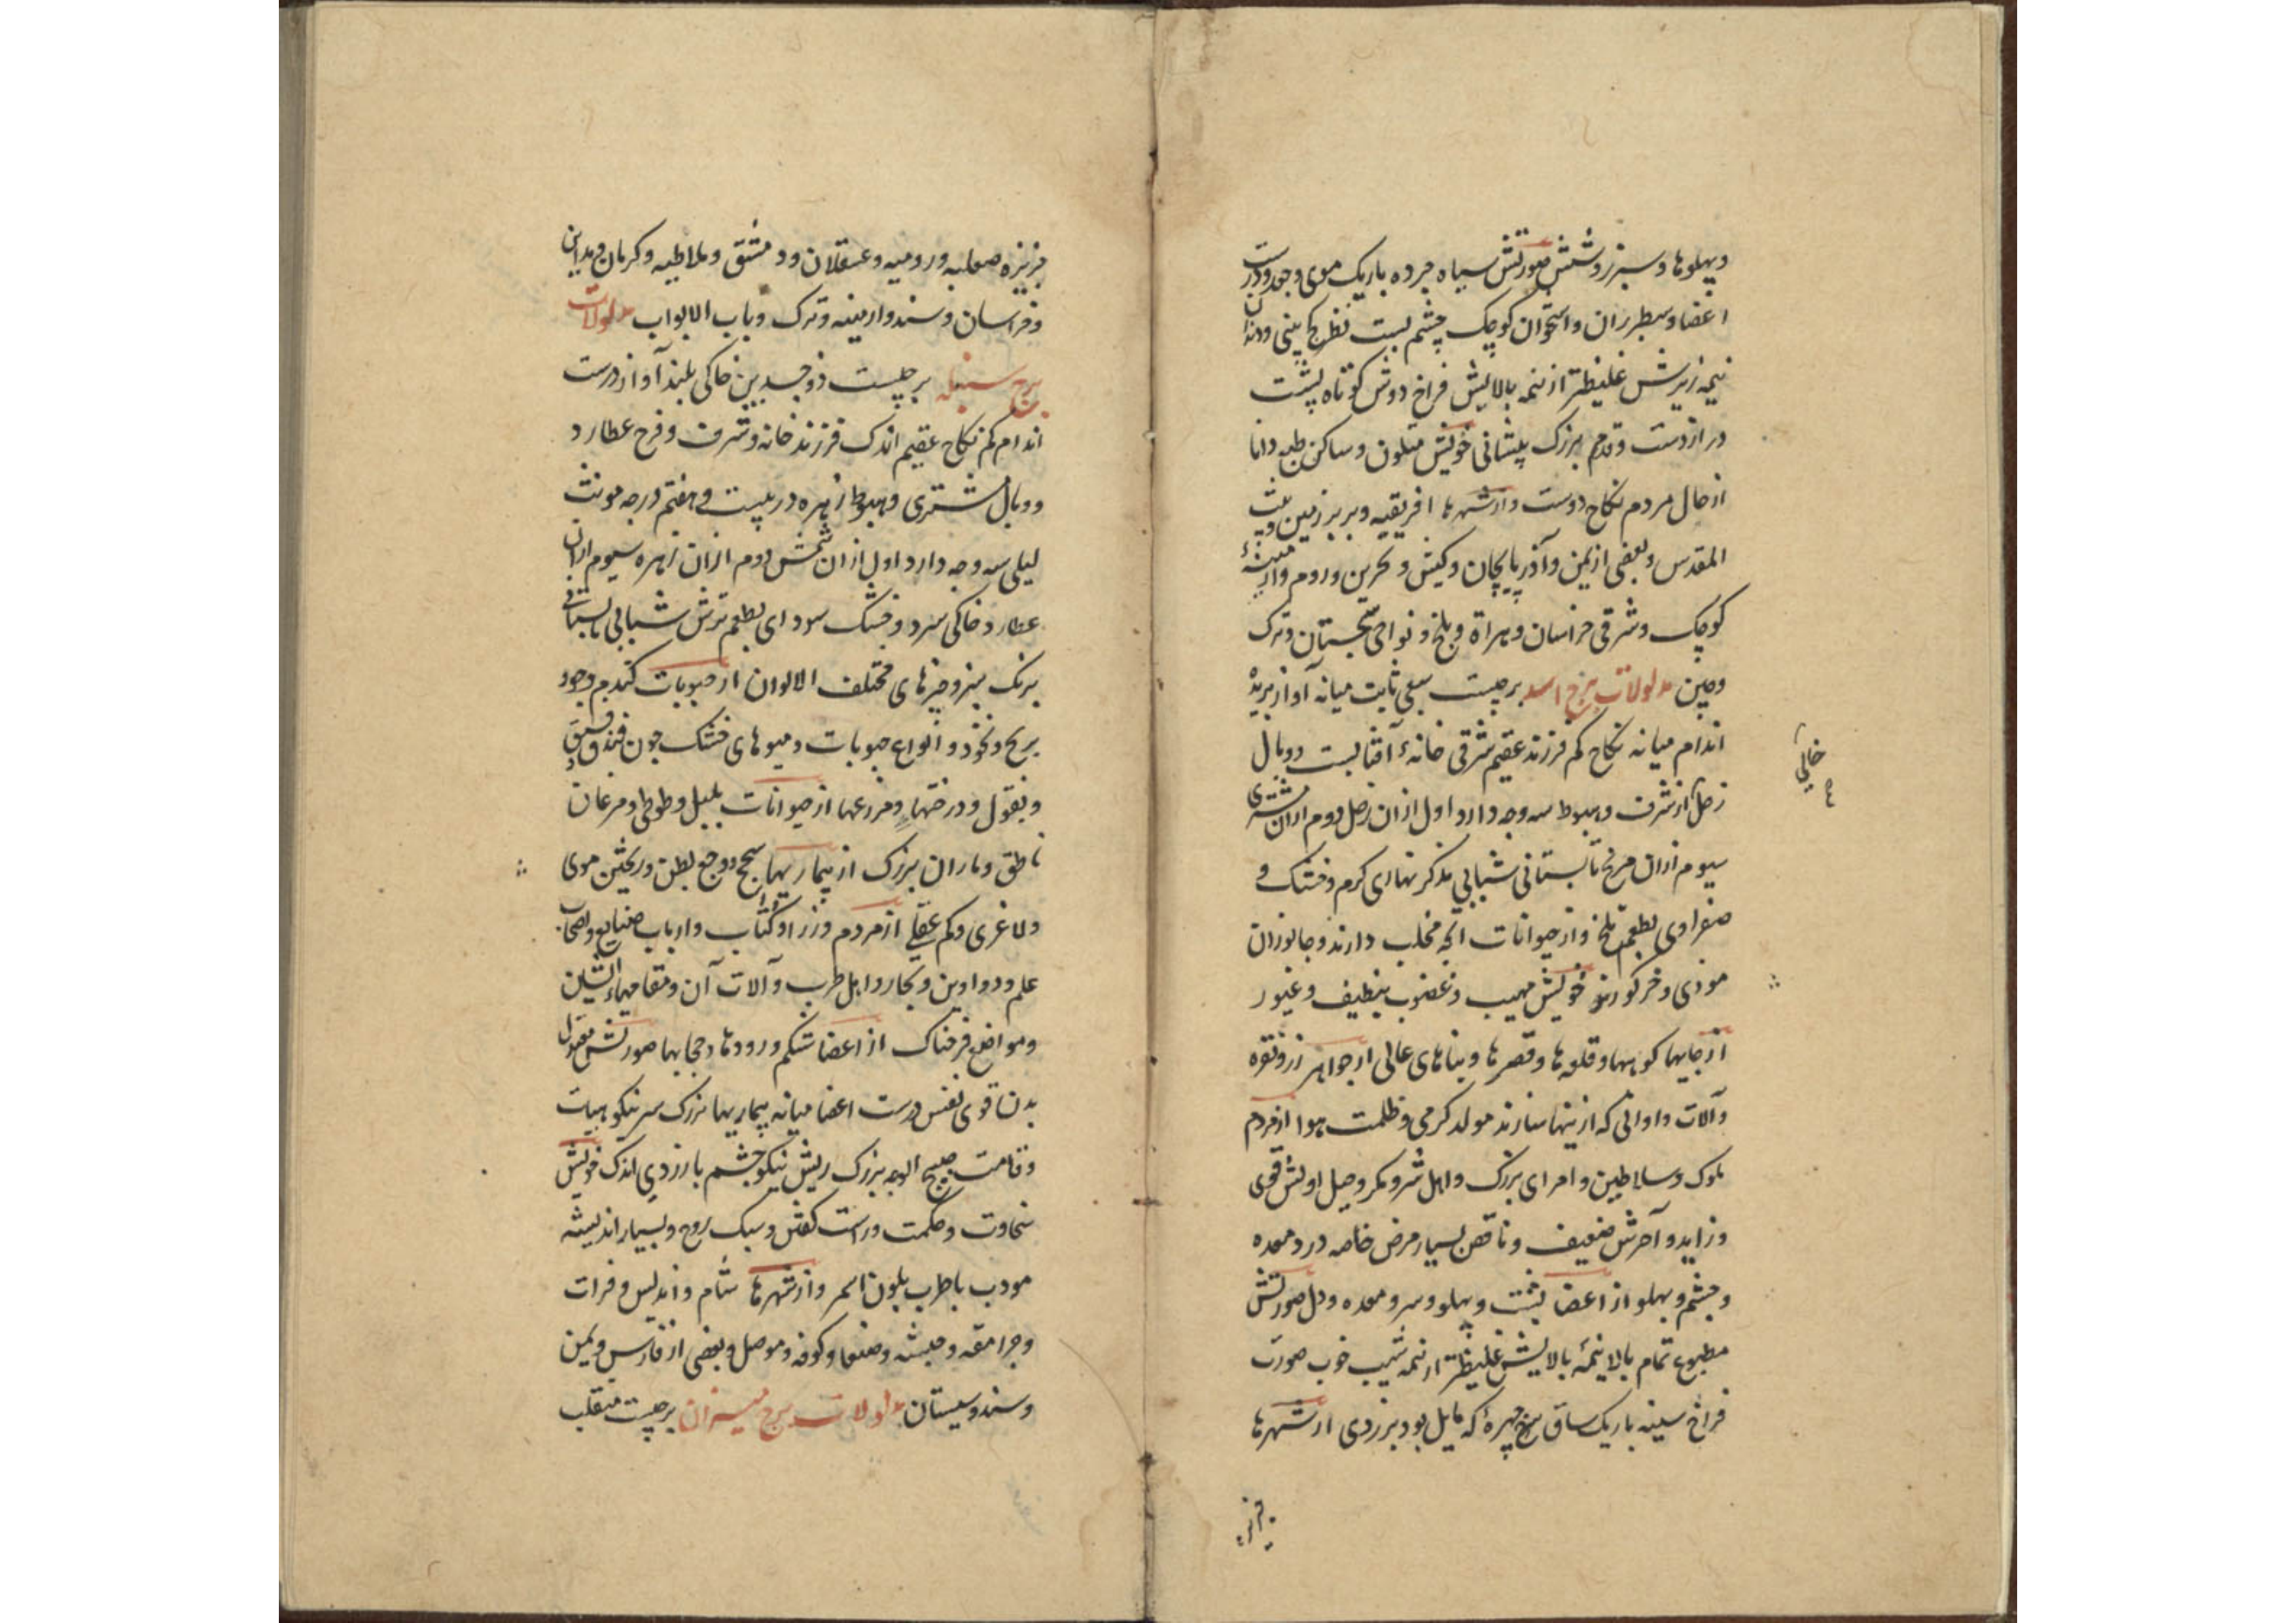 وپهلوها و سبزر و شش صورتش سیاه چرده باریک موی وجعد ودرست
اعضا و سطبر ران و استخوان کوچک چشم پست نظر کج بینی ودندان
نیمه زیرش غلیظتر از نیمه بالایش فراخ دوش کوتاه پشت
دراز دست وقدم بزرک پیشانی خویش متلون وساکن طبع دانا
از حال مردم نکاح دوست واز شهرها افریقیه وبربر زمین وبیت
المقدس وبعضی از یمن وآذربایجان وکیش وبحرین وروم وارمینهٔ
کوچک وشرقی خراسان وهراة وبلخ ونواحی سجستان وترک
وچین مدلولات برج اسد برجیست سبعی ثابت میانه آواز بریده
اندام میانه نکاح کم فرزند عقیم شرقی خانهٔ آفتابست ووبال
زحل از شرف وهبوط سه وجه دارد اول ازان زحل دوم ازان مشتری
سیوم ازان مریخ تابستانی شبابی مذکر نهاری کرم وخشک و
صفراوی بطعم تلخ واز حیوانات آنچه مخلب دارند وجانوران
موذی وخر کور خویش مهیب وغضوب نظیف وغیور
از جایها کوهها وقلعه ها وقصرها وبناهای عالی از جواهر زر ونقره
وآلات واوانی که ازینها سازند مولد کرمی وظلمت هوا از مردم
ملوک وسلاطین وامرای بزرک واهل شر ومکر وحیل اولش قوی
وزاید وآخرش ضعیف وناقص بسیار مرض خاصه درد معده
وچشم وپهلو از اعضا پشت وپهلو وسر ومعده ودل صورتش
مطبوع تمام بالا نیمهٔ بالایش غلیظتر از نیمه شیب خوب صورت
فراخ سینه باریک ساق سرخ چهرهٔ که مایل بود بزردی از شهرها
خالی
جزیزه صقلیه ورومیه وعسقلان ودمشق وملاطیه وکرمان ومداین
وخراسان وسند وارمینه وترک وباب الابواب مدلولات
برج سنبله برجیست ذوجسدین خاکی بلند آواز درست
اندام کم نکاح عقیم اندک فرزند خانه وشرف وفرح عطارد
ووبال مشتری وهبوط زهره در بیست وهفتم درجه مونث
لیلی سه وجه دارد اول ازان شمس دوم ازان زهره سیوم ازان
عطارد خاکی سرد وخشک سودای بطعم ترش شبابی تابستانی
برنک سبز وچیزهای مختلف الالوان از حبوبات کندم وجو
برنج ونخود وانواع حبوبات ومیوهای خشک چون فندق وفستق
وبقول ودرختها ومزرعها از حیوانات بلبل وطوطی ومرغان
ناطق وماران بزرک از بیماریها سحج ووجع بطن وریختن موی
ولاغری وکم عقلی از مردم وزرا وکتاب وارباب صنایع واصحاب
علم ودواوین وتجار واهل طرب وآلات آن ومقامهاء الشین
ومواضع فرحناک از اعضا شکم ورودها وحجابها صورتش معتدل
بدن قوی نفس درست اعضا میانه بیماریها بزرک سر نیکو هیات
وقامت صبیح الوجه بزرک ریش نیکو چشم با زردی اندک خویش
سخاوت وحکمت وراست کفتن وسبک روح وبسیار اندیشه
مودب باطرب بلون اسمر واز شهرها شام واندلس وفرات
وجرامقه وحبشه وصنعا وکوفه وموصل وبعضی از فارس ویمن
وسند وسیستان مدلولات برج میزان برجیست منقلب